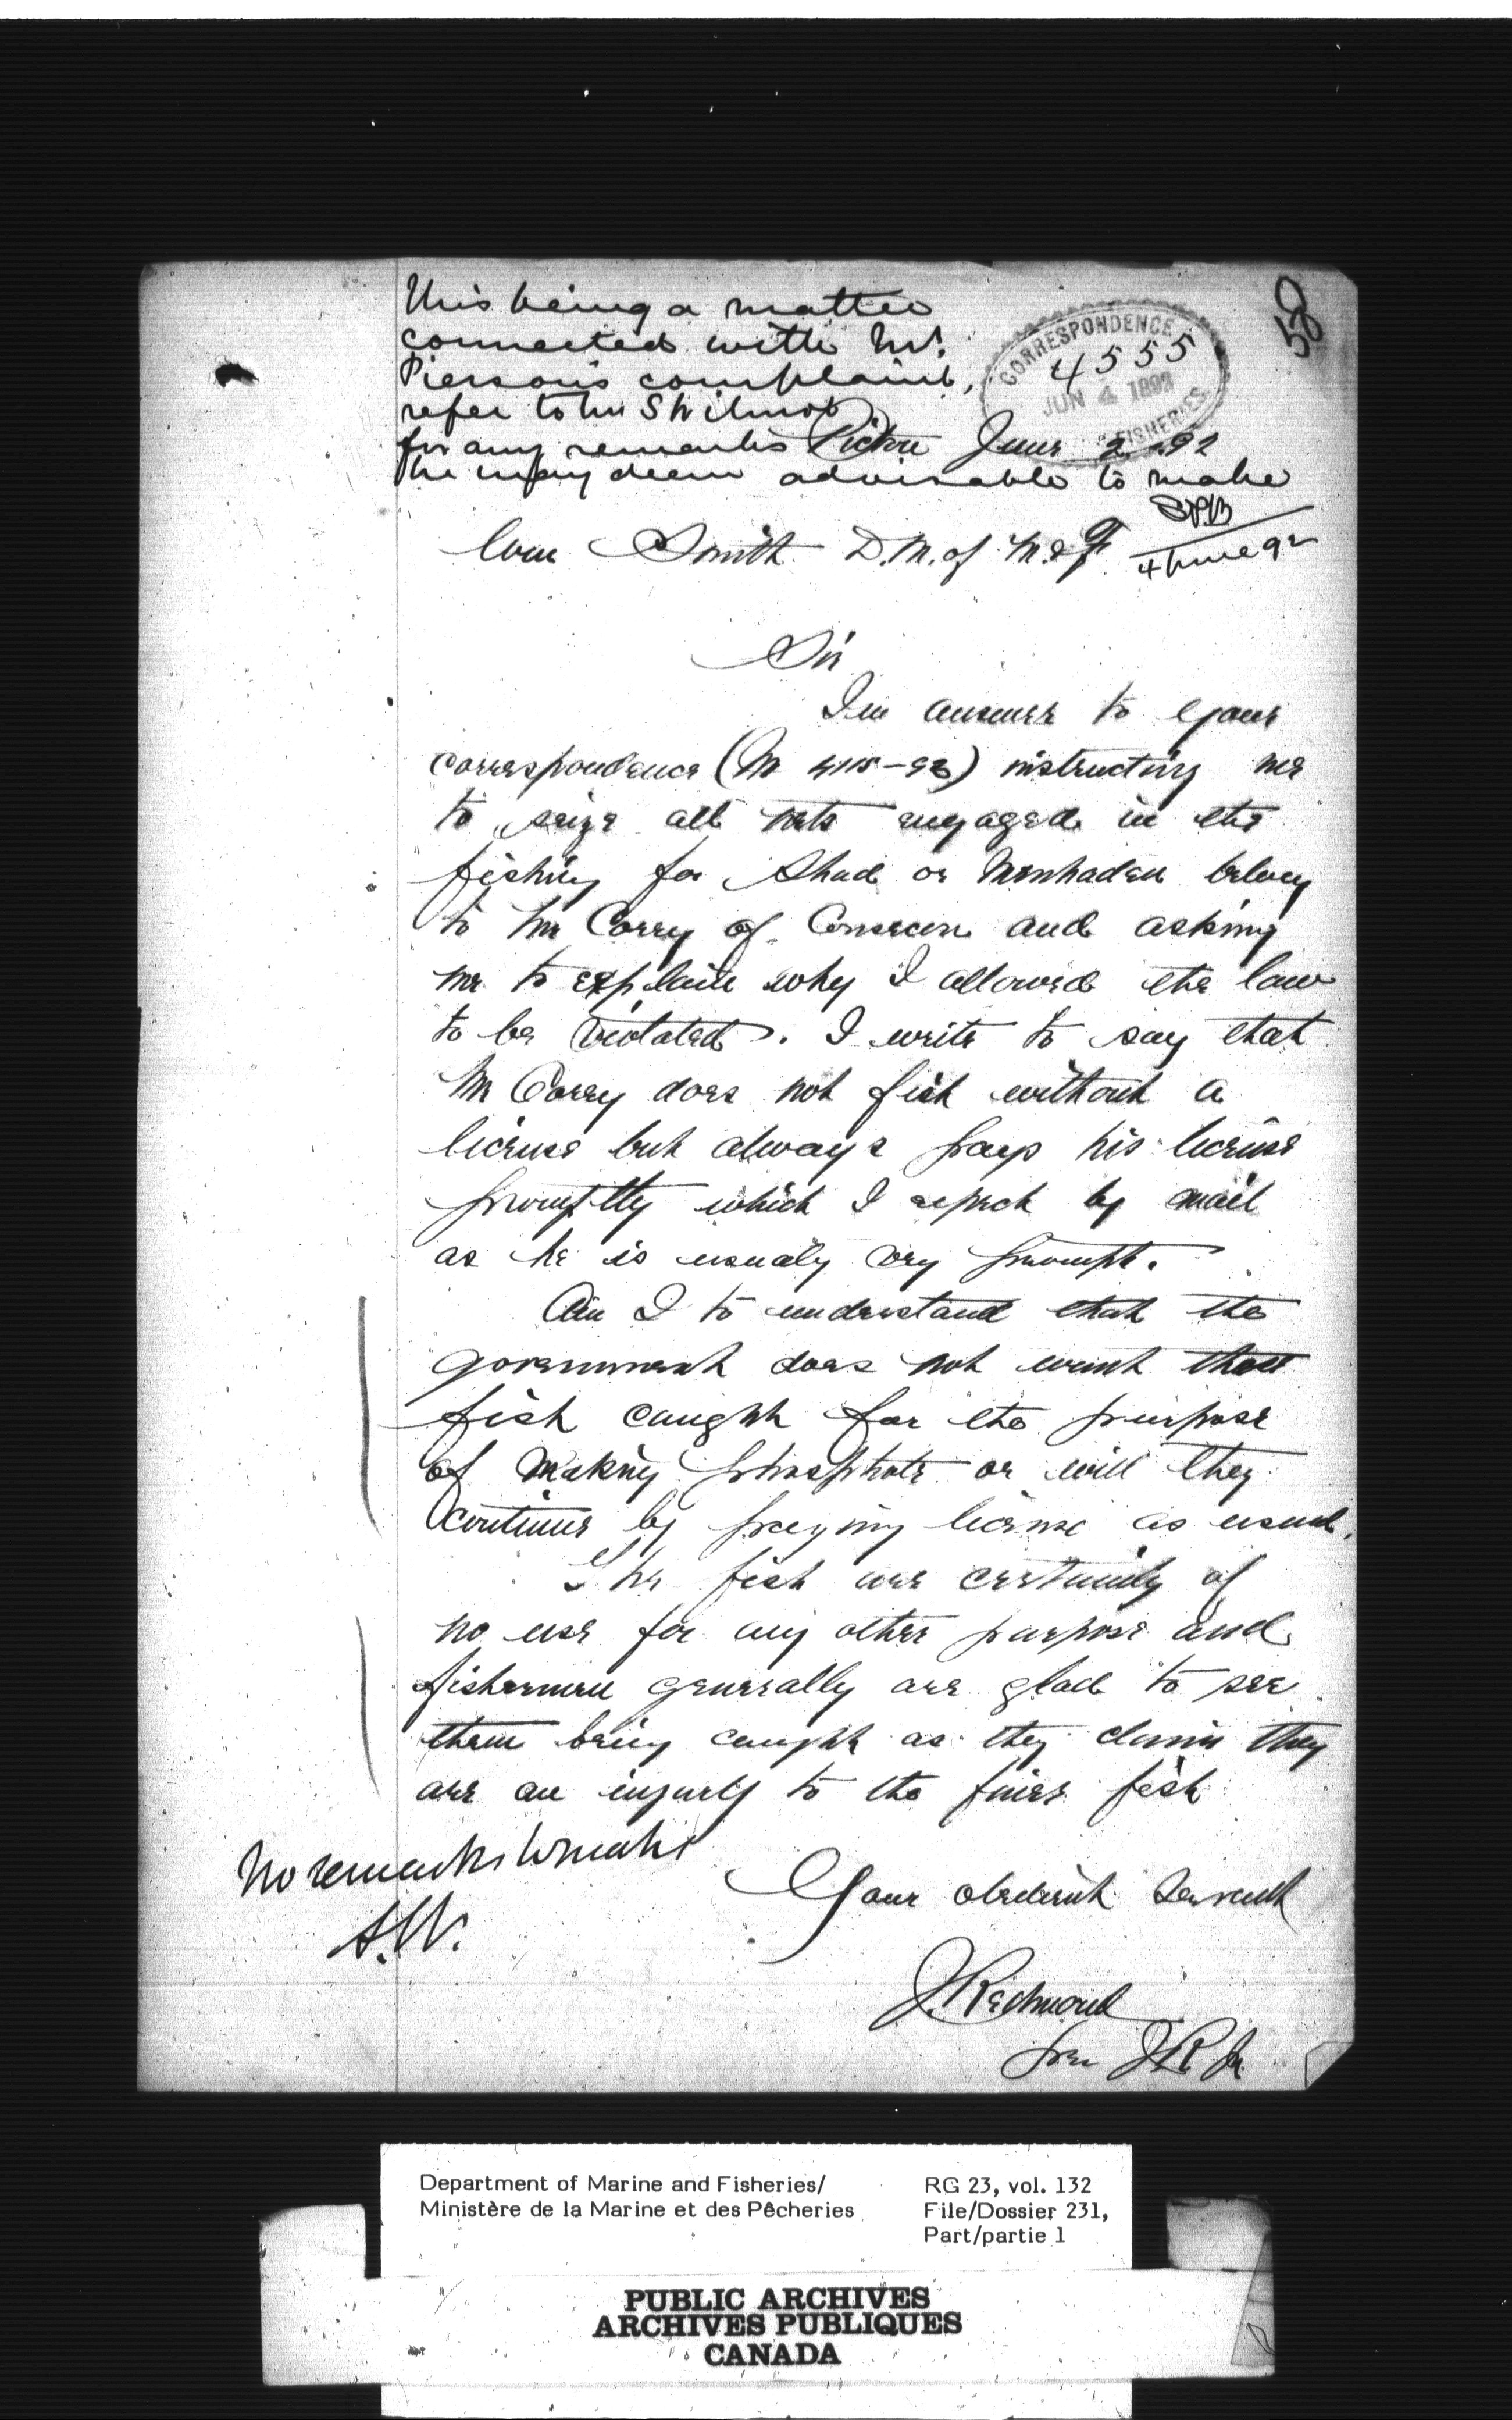 58
This being a matter
connected with Mr.
Pierson's complaint,
refer to Mr S Wilmot
for any remarks
he may deem advisable to make
SPB
4 June 92
CORRESPONDENCE
4555
JUN 4 1892
FISHERIES
Picton June 2 92
Wm Smith D.M. of M. & F
Sir
In answer to your
correspondence (M 4115-92) instructing me
to seize all nets engaged in the
fishing for Shad or Menhaden belong
to Mr Corey of Consecon and asking
me to explain why I allowed the law
to be violated. I write to say that
Mr Corey does not fish without a
license but always pays his license
promptly which I expect by mail
as he is usualy very prompt.
Am I to understand that the
government does not want these
fish caught for the purpose
of making phosphate or will they
continue by paying license as usual.
The fish are certainly of
no use for any other purpose and
fishermen generally are glad to see
them being caught as they claim they
are an injury to the finer fish
Your obedient Servant
J. Redmond
per J R Jr
No remarks to make
S.W.
Department of Marine and Fisheries/
Ministère de la Marine et des Pêcheries
RG 23, vol. 132
File/Dossier 231,
Part/partie 1
PUBLIC ARCHIVES
ARCHIVES PUBLIQUES
CANADA